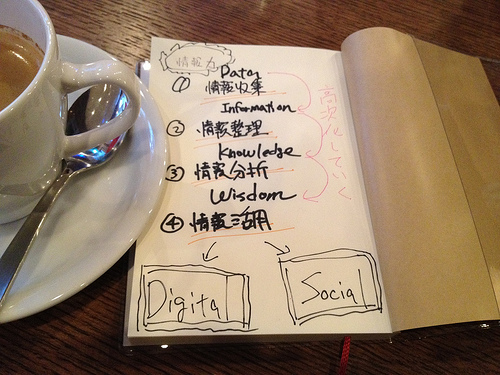 情報力
Data
① 情報収集
Information
② 情報整理
Knowledge
③ 情報分析
Wisdom
④ 情報活用
高次化していく
Digital
Social